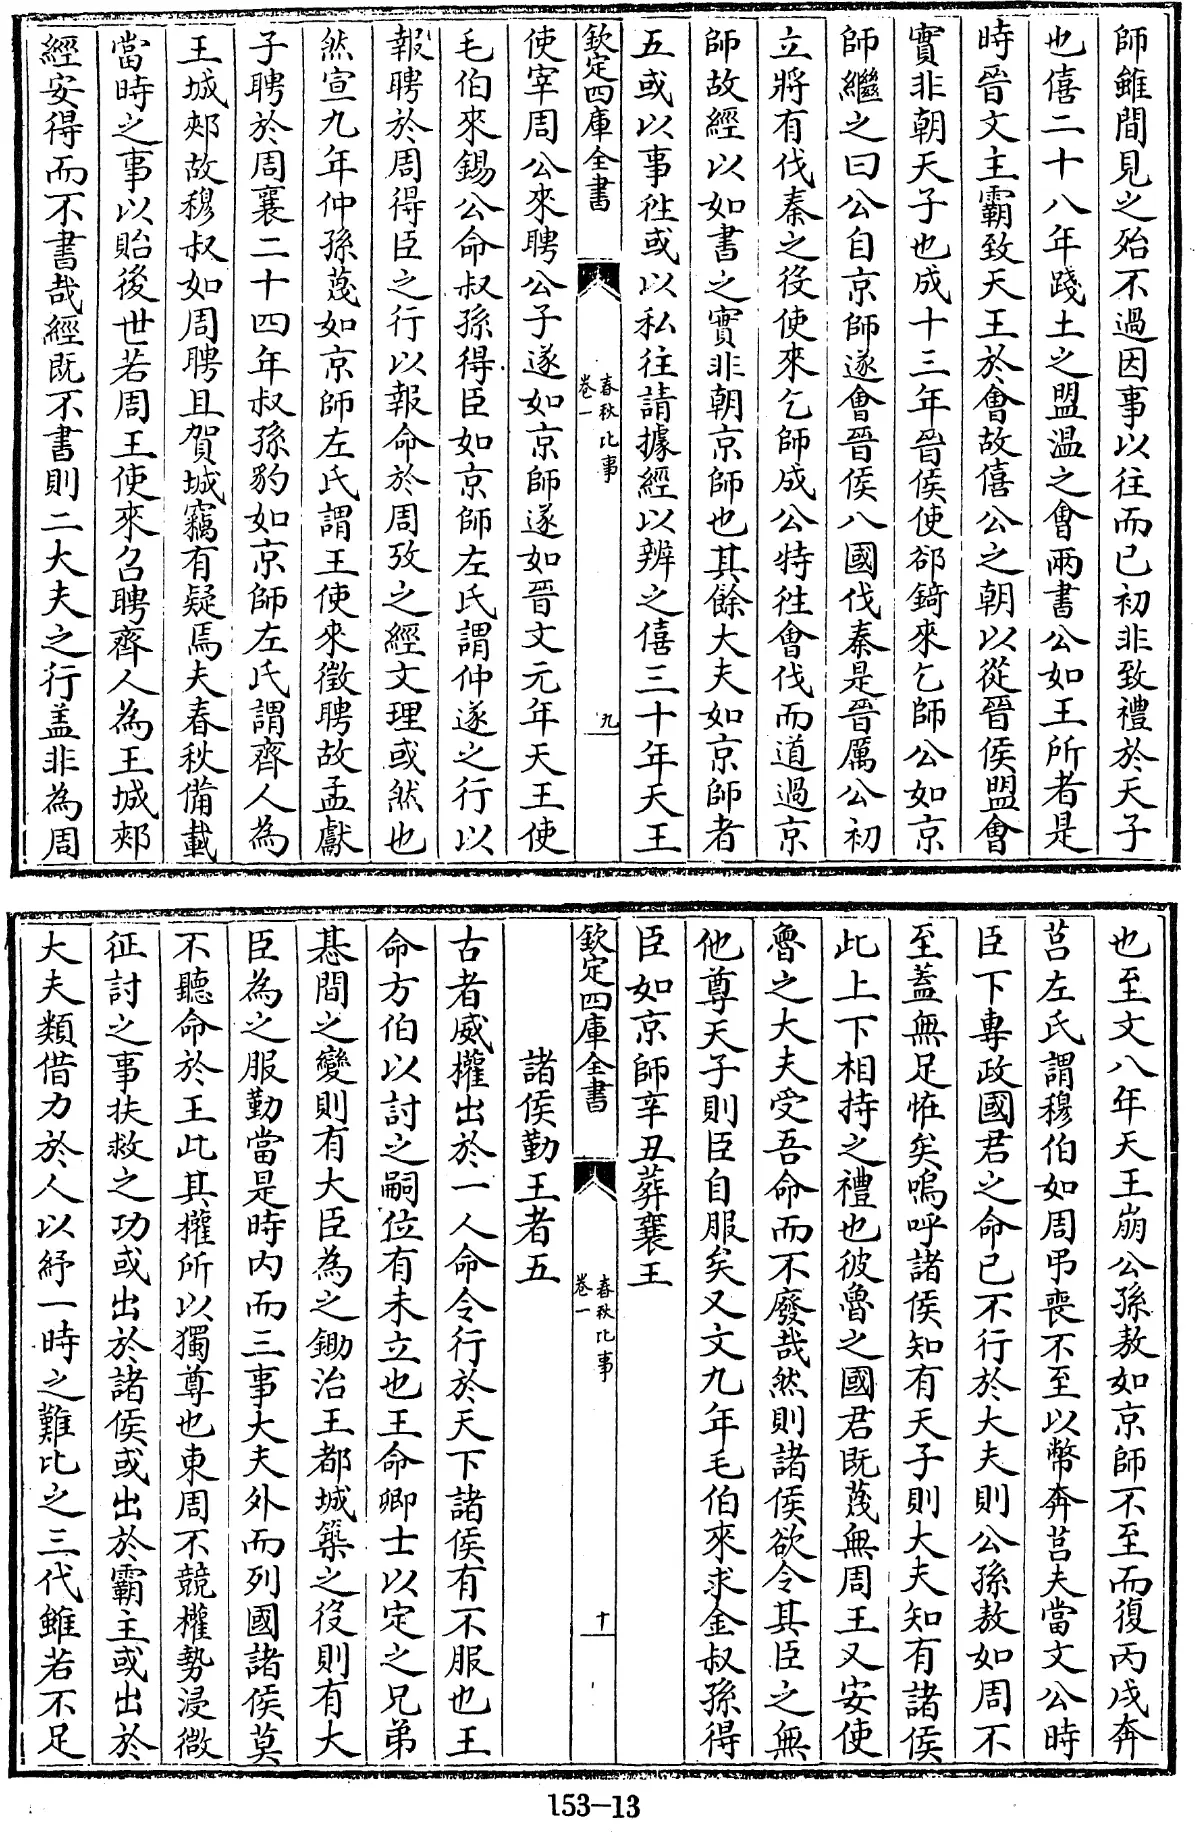 師雖間見之殆不過因事以往而已初非致禮於天子
也僖二十八年踐土之盟溫之會兩書公如王所者是
時晉文主霸致天王於會故僖公之朝以從晉侯盟會
實非朝天子也成十三年晉侯使郤錡來乞師公如京
師繼之曰公自京師遂會晉侯八國伐秦是晉厲公初
立將有伐秦之役使來乞師成公特徃會伐而道過京
師故經以如書之實非朝京師也其餘大夫如京師者
五或以事徃或以私往請據經以辨之僖三十年天王
欽定四庫全書
春秋比事
卷一
九
使宰周公來聘公子遂如京師遂如晉文元年天王使
毛伯來錫公命叔孫得臣如京師左氏謂仲遂之行以
報聘於周得臣之行以報命於周攷之經文理或然也
然宣九年仲孫蔑如京師左氏謂王使來徵聘故孟獻
子聘於周襄二十四年叔孫豹如京師左氏謂齊人為
王城郟故穆叔如周聘且賀城竊有疑焉夫春秋備載
當時之事以貽後世若周王使來召聘齊人為王城郟
經安得而不書哉經既不書則二大夫之行盖非為周
也至文八年天王崩公孫敖如京師不至而復丙戌奔
莒左氏謂穆伯如周弔喪不至以幣奔莒夫當文公時
臣下專政國君之命已不行於大夫則公孫敖如周不
至蓋無足恠矣嗚呼諸侯知有天子則大夫知有諸侯
此上下相持之禮也彼魯之國君既蔑無周王又安使
魯之大夫受吾命而不廢哉然則諸侯欲令其臣之無
他尊天子則臣自服矣又文九年毛伯來求金叔孫得
臣如京師辛丑葬襄王
欽定四庫全書
春秋比事
卷一
十
諸侯勤王者五
古者威權出於一人命令行於天下諸侯有不服也王
命方伯以討之嗣位有未立也王命卿士以定之兄弟
惎間之變則有大臣為之鋤治王都城築之役則有大
臣為之服勤當是時内而三事大夫外而列國諸侯莫
不聽命於王此其權所以獨尊也東周不競權勢浸微
征討之事扶救之功或出於諸侯或出於霸主或出於
大夫類借力於人以紓一時之難比之三代雖若不足
153-13